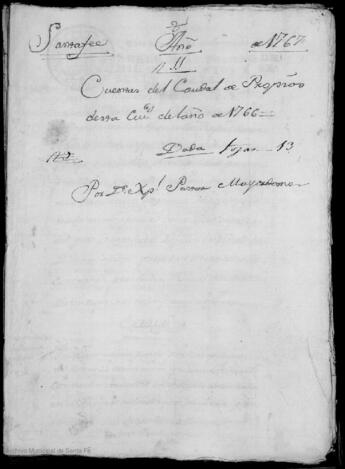 Santafee Año de 1767
Cuentas del Caudal de Propios
desta Ciu.d del año de 1766
Data fojas 13
Por Dn Xpl Mayordomo
Archivo Municipal de Santa Fé